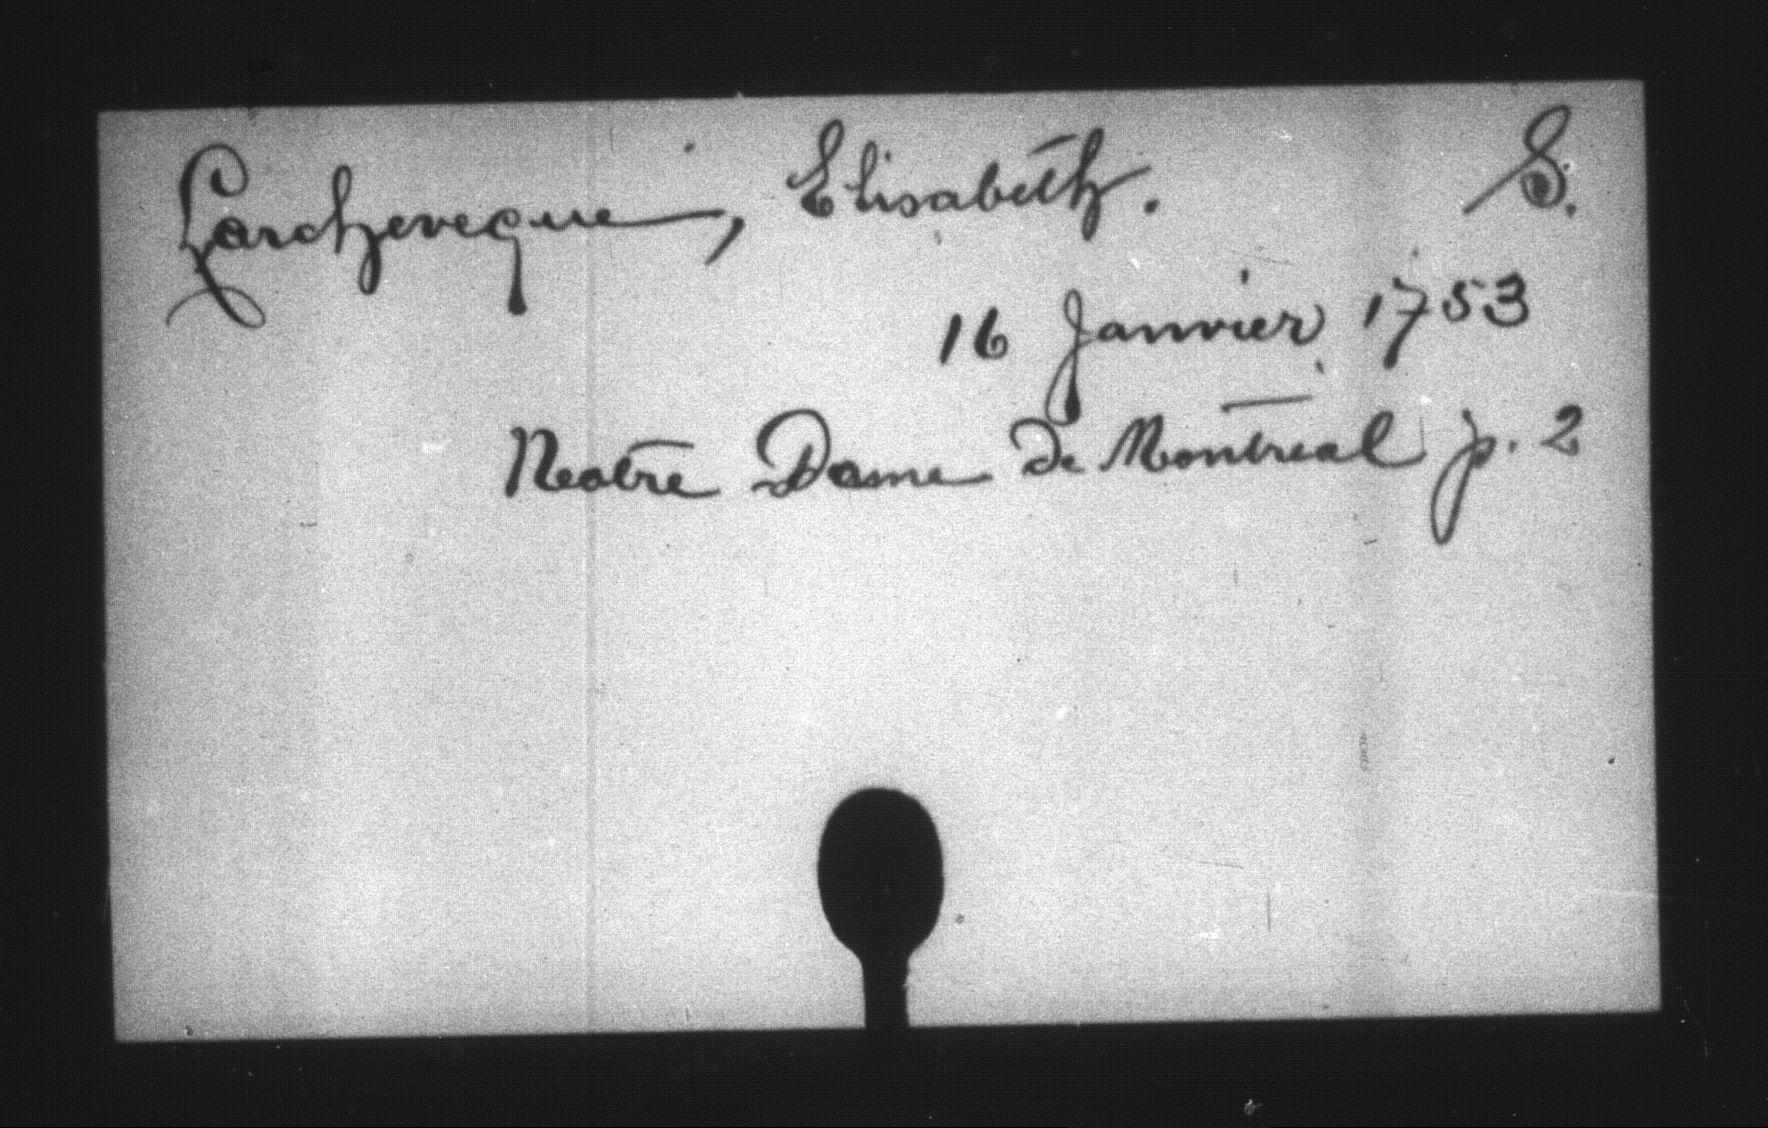 Larcheveque, Elisabeth. S.
16 Janvier 1753
Notre Dame de Montreal p. 2